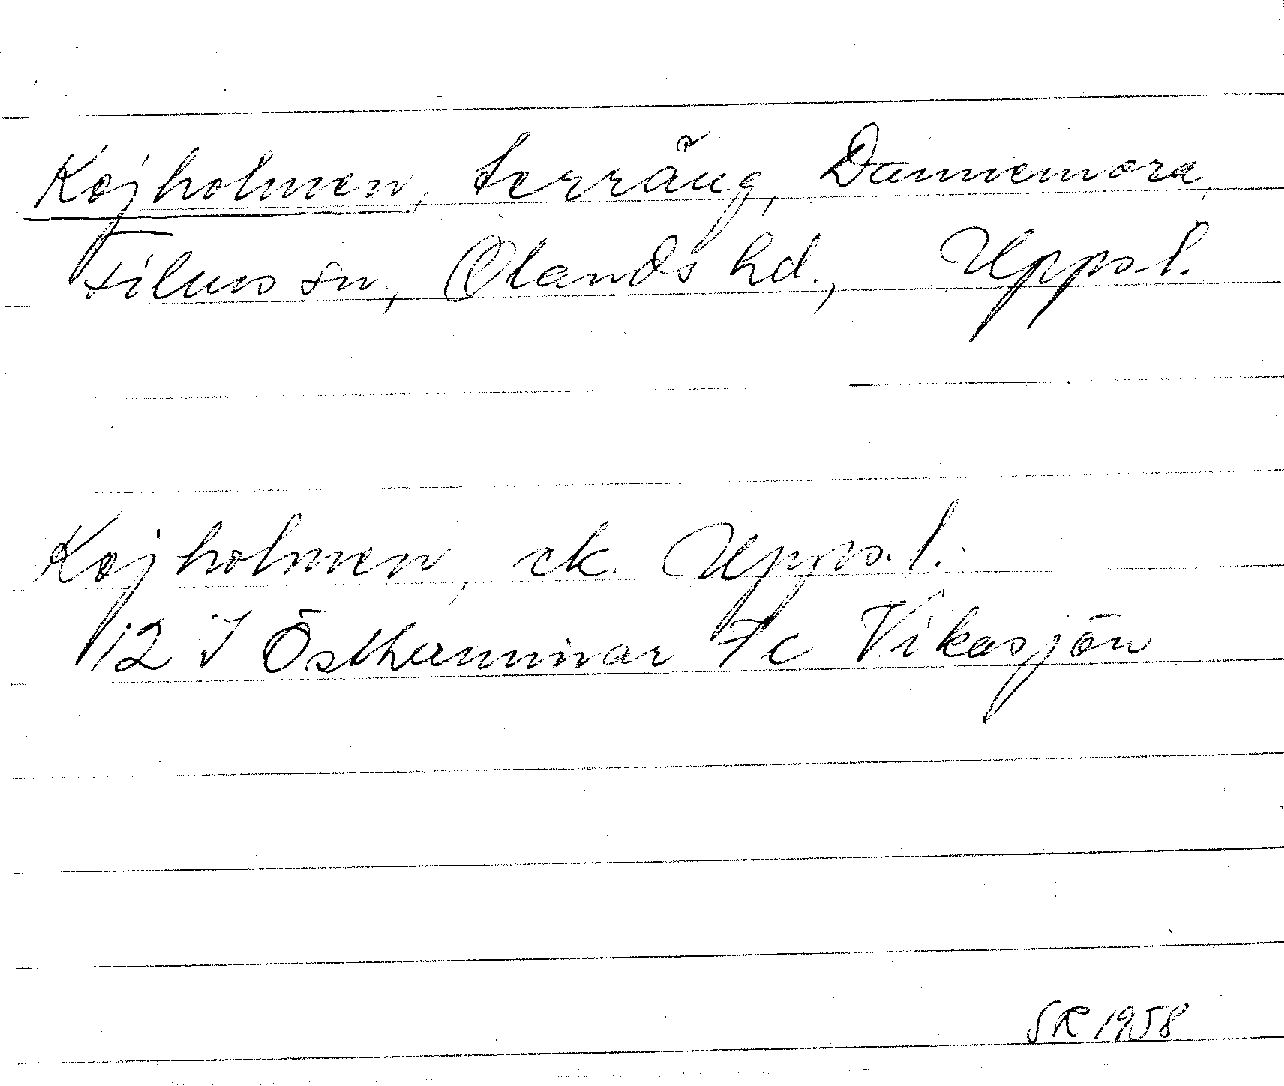 Kojholmen, terräng, Dannemora,
Films sn, Olands hd., Upps. l.
Kojholmen, ek. Upps. l.
12 I Östhammar 7c Vikasjön
SR 1958